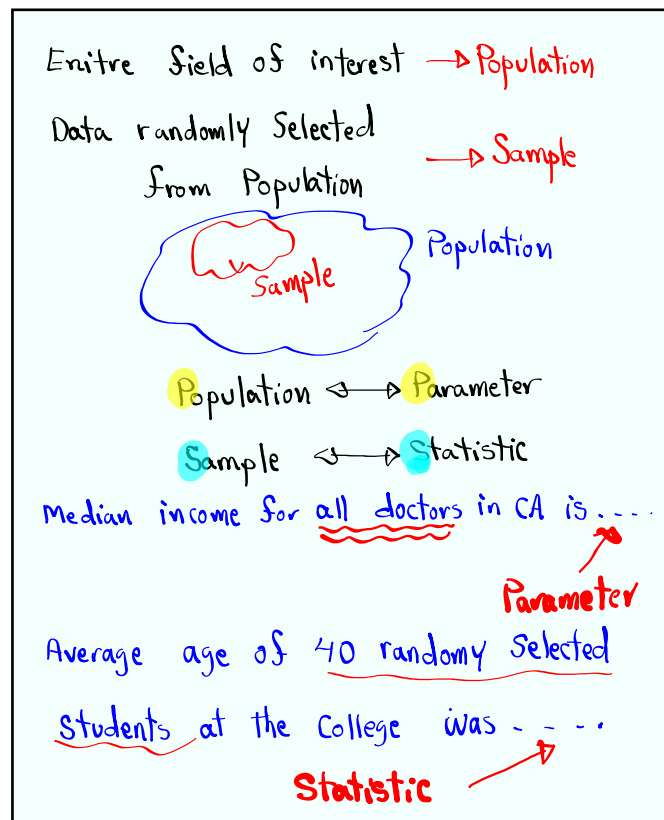 Enitre field of interest → Population
Data randomly Selected
from Population → Sample
Population
Sample
Population ↔ Parameter
Sample ↔ Statistic
Median income for all doctors in CA is ....
Parameter
Average age of 40 randomy Selected
Students at the College was ----
Statistic